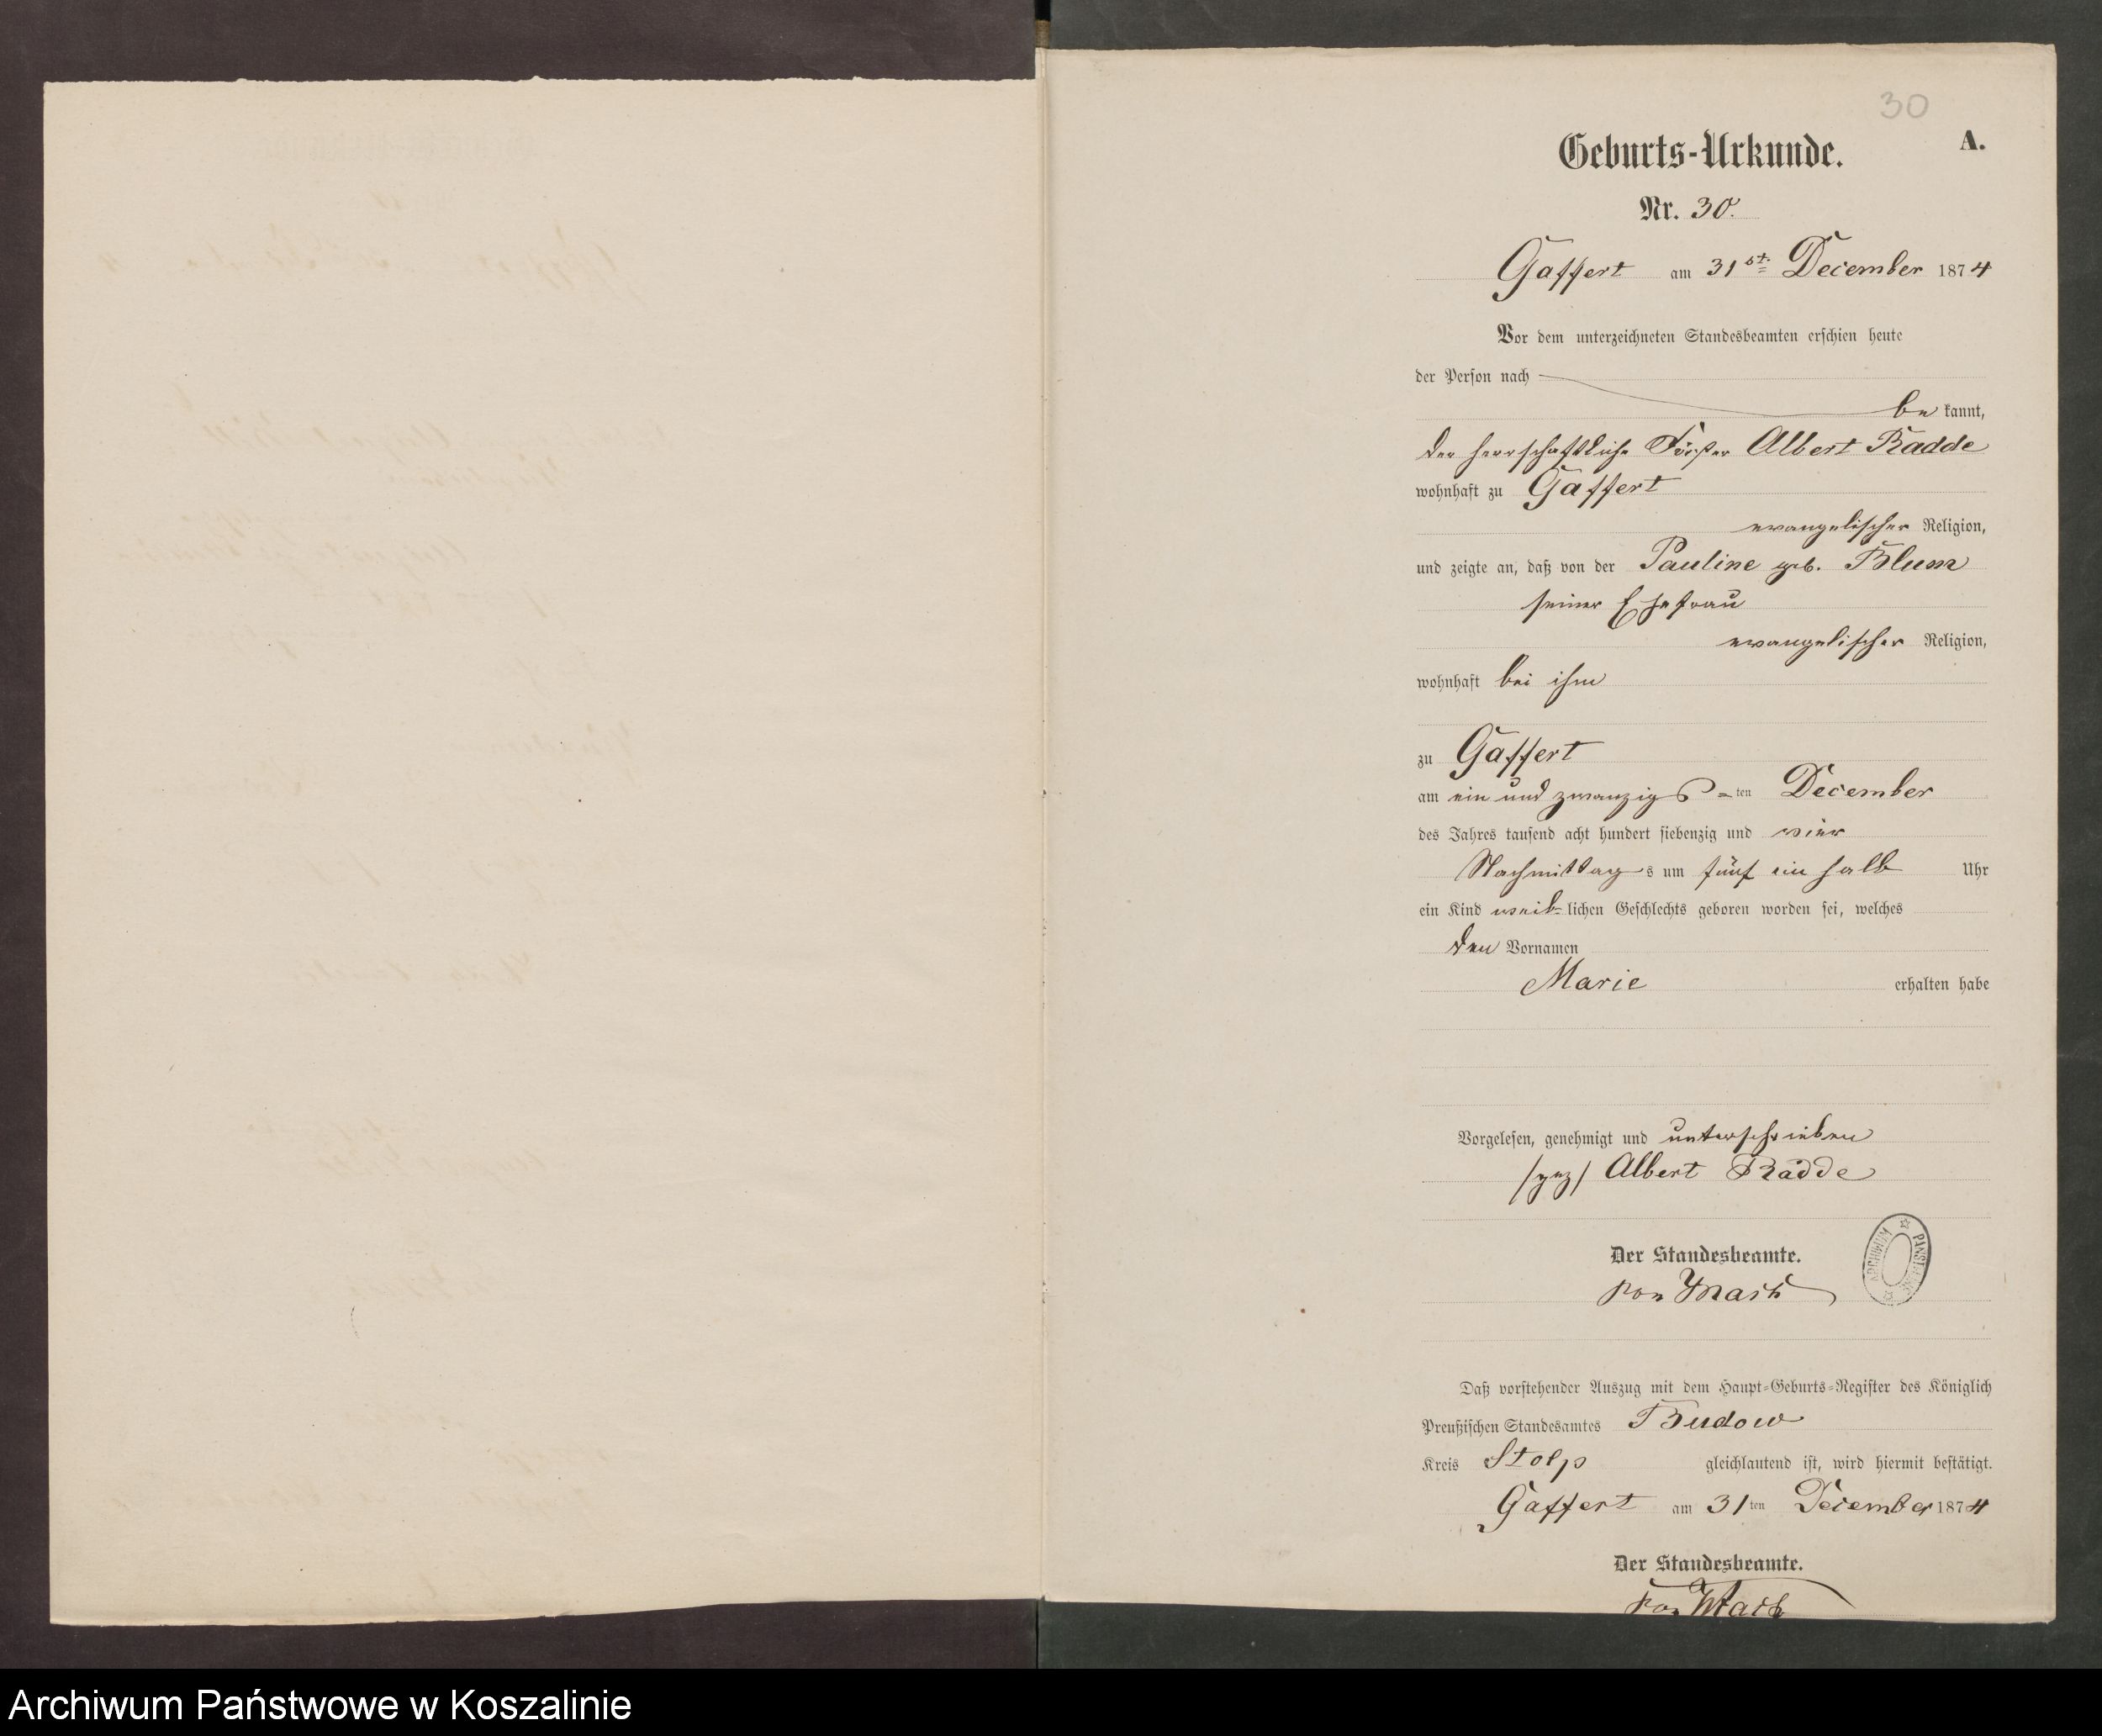 30
Geburts-Urkunde.
A.
Nr. 30.
Gaffert am 31st. December 1874
Vor dem unterzeichneten Standesbeamten erschien heute
der Person nach
be kannt,
der herrschaftliche Förster Albert Radde
wohnhaft zu Gaffert
evangelischer Religion,
und zeigte an, daß von der Pauline geb. Blum
seiner Ehefrau
evangelischer Religion,
wohnhaft bei ihm
zu Gaffert
am ein und zwanzigs=ten December
des Jahres tausend acht hundert siebenzig und vier
Nachmittags um fünf ein halb Uhr
ein Kind weib-lichen Geschlechts geboren worden sei, welches
den Vornamen
Marie erhalten habe
Vorgelesen, genehmigt und unterschrieben
/gez/ Albert Radde
Der Standesbeamte.
von
ARCHIWUM PAŃSTWOWE
Daß vorstehender Auszug mit dem Haupt-Geburts-Register des Königlich
Preußischen Standesamtes Budow
Kreis Stolp gleichlautend ist, wird hiermit bestätigt.
Gaffert am 31ten December 1874
Der Standesbeamte.
von
Archiwum Państwowe w Koszalinie